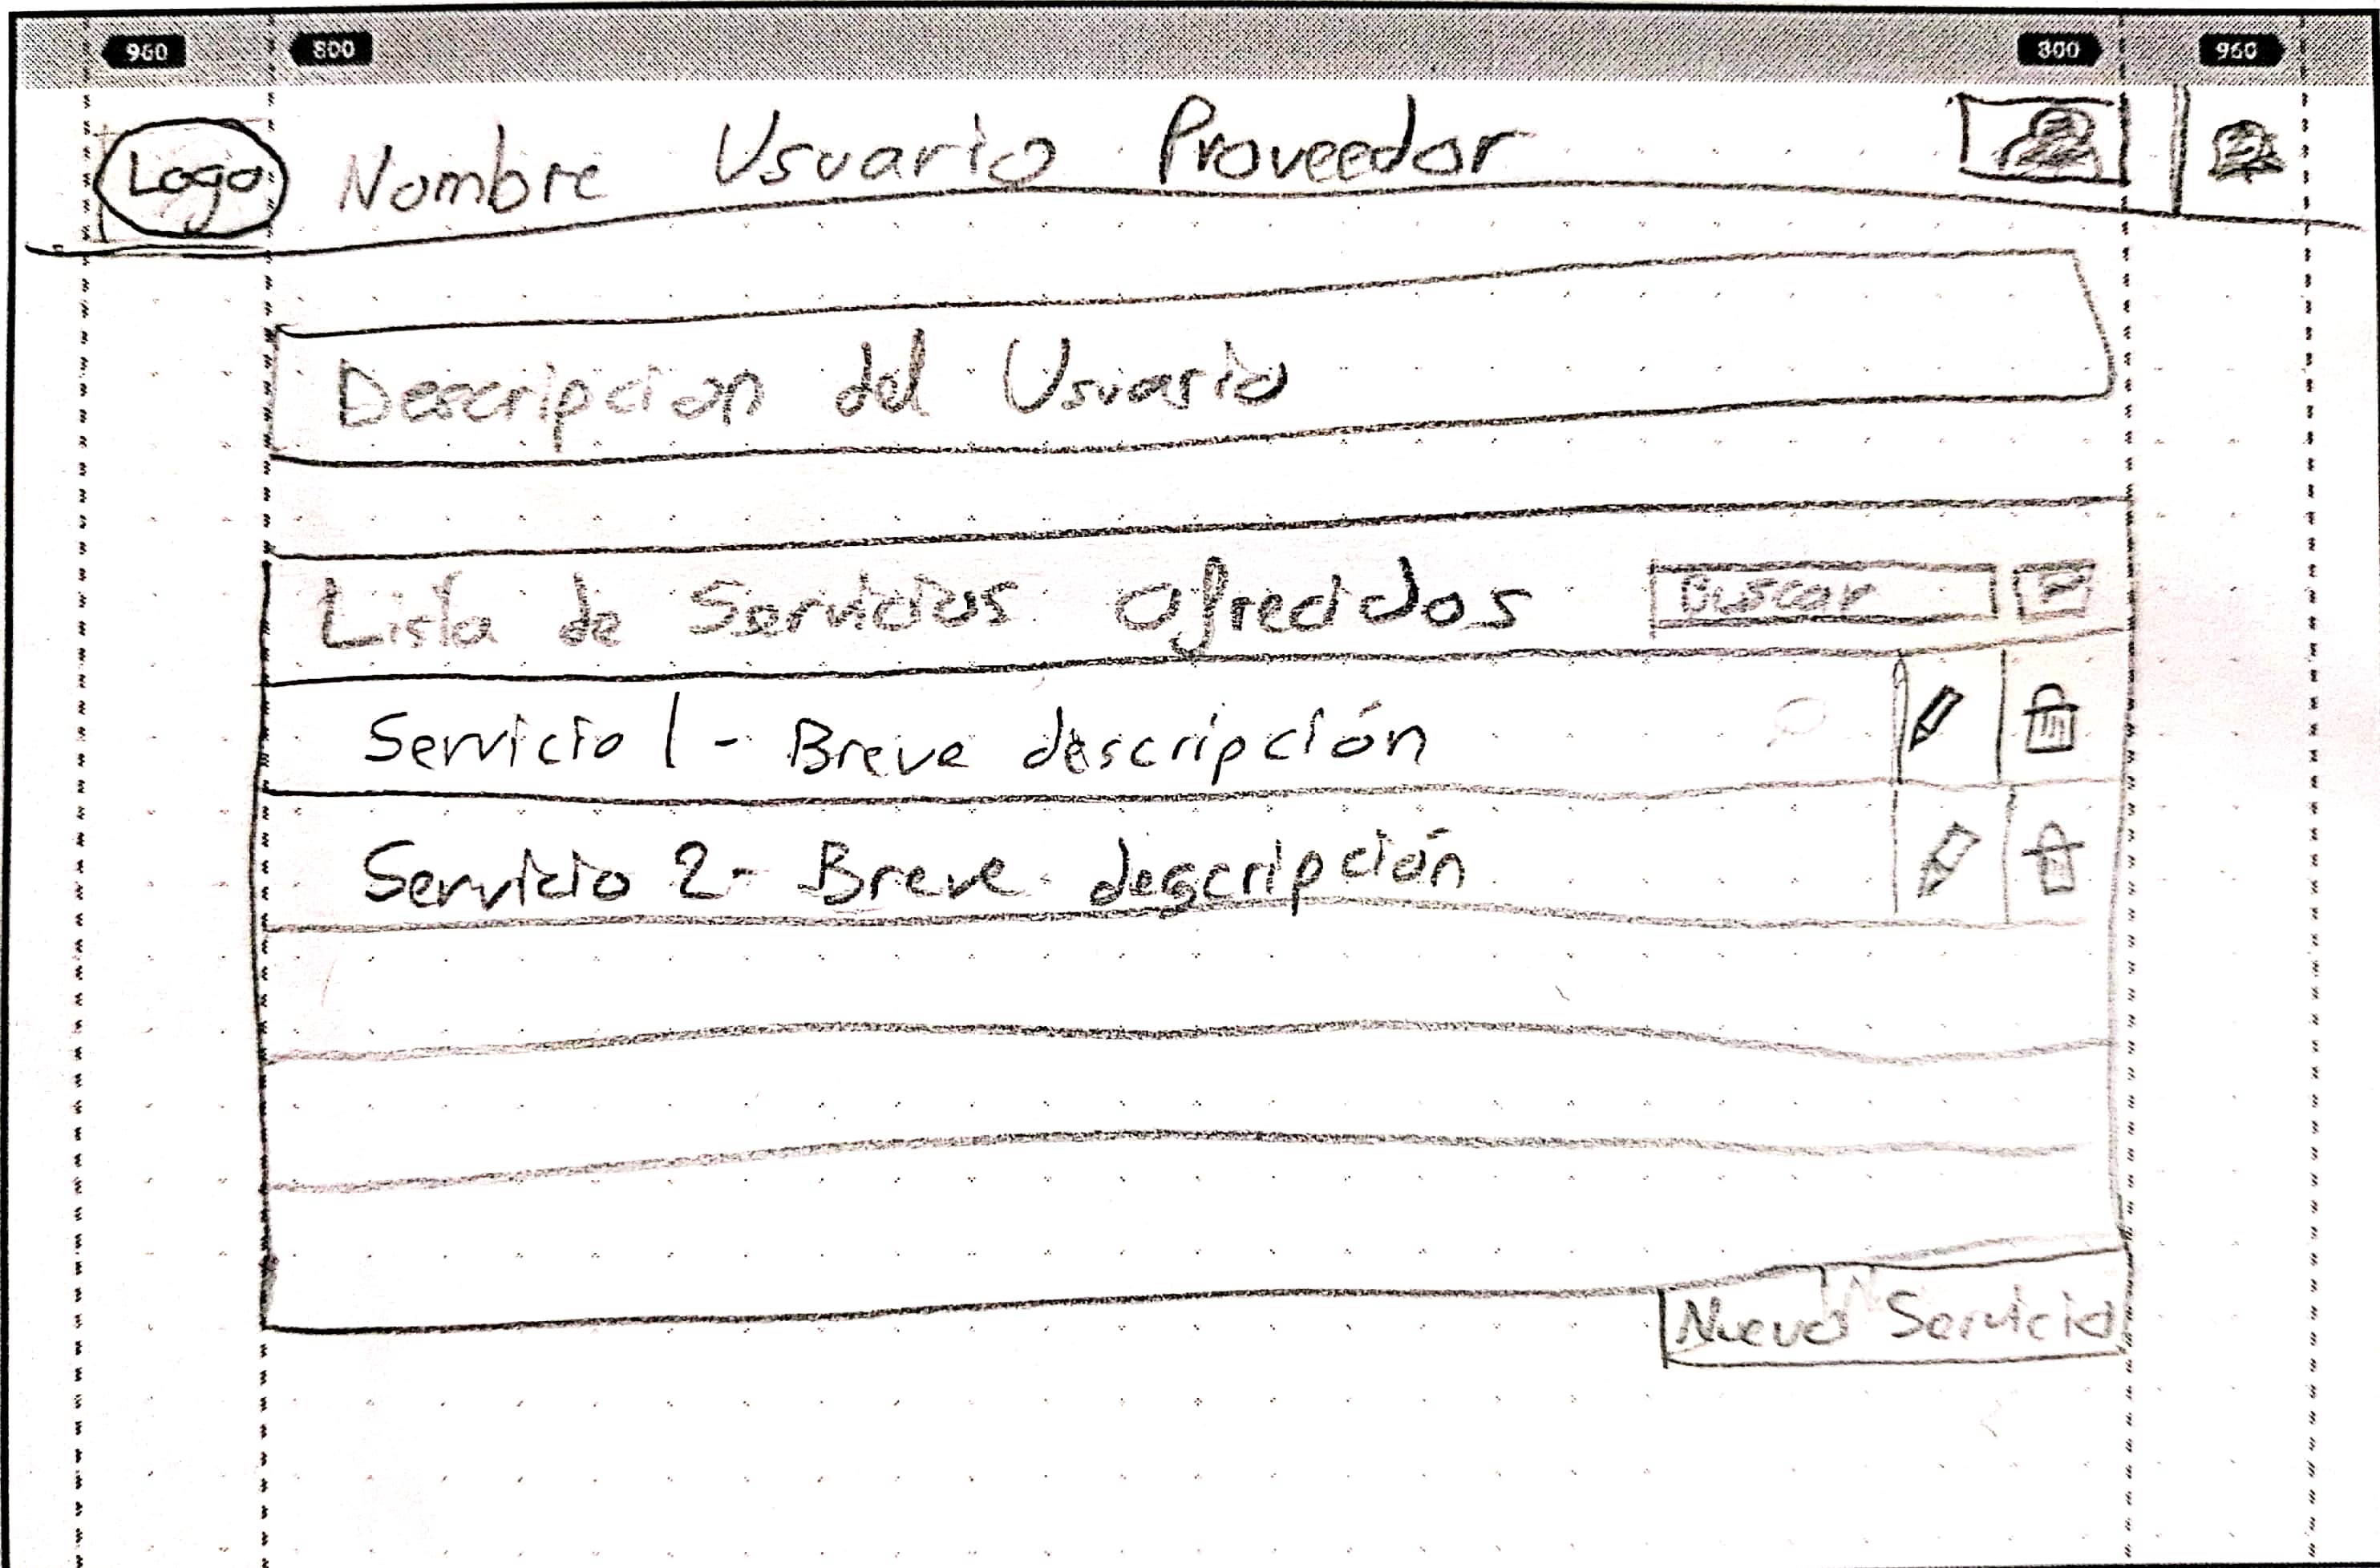 960 800 800 960
Logo Nombre Usuario Proveedor
Descripcion del Usuario
Lista de Servicios Ofrecidos Buscar
Servicio 1 - Breve descripción
Servicio 2 - Breve descripción
Nuevo Servicio